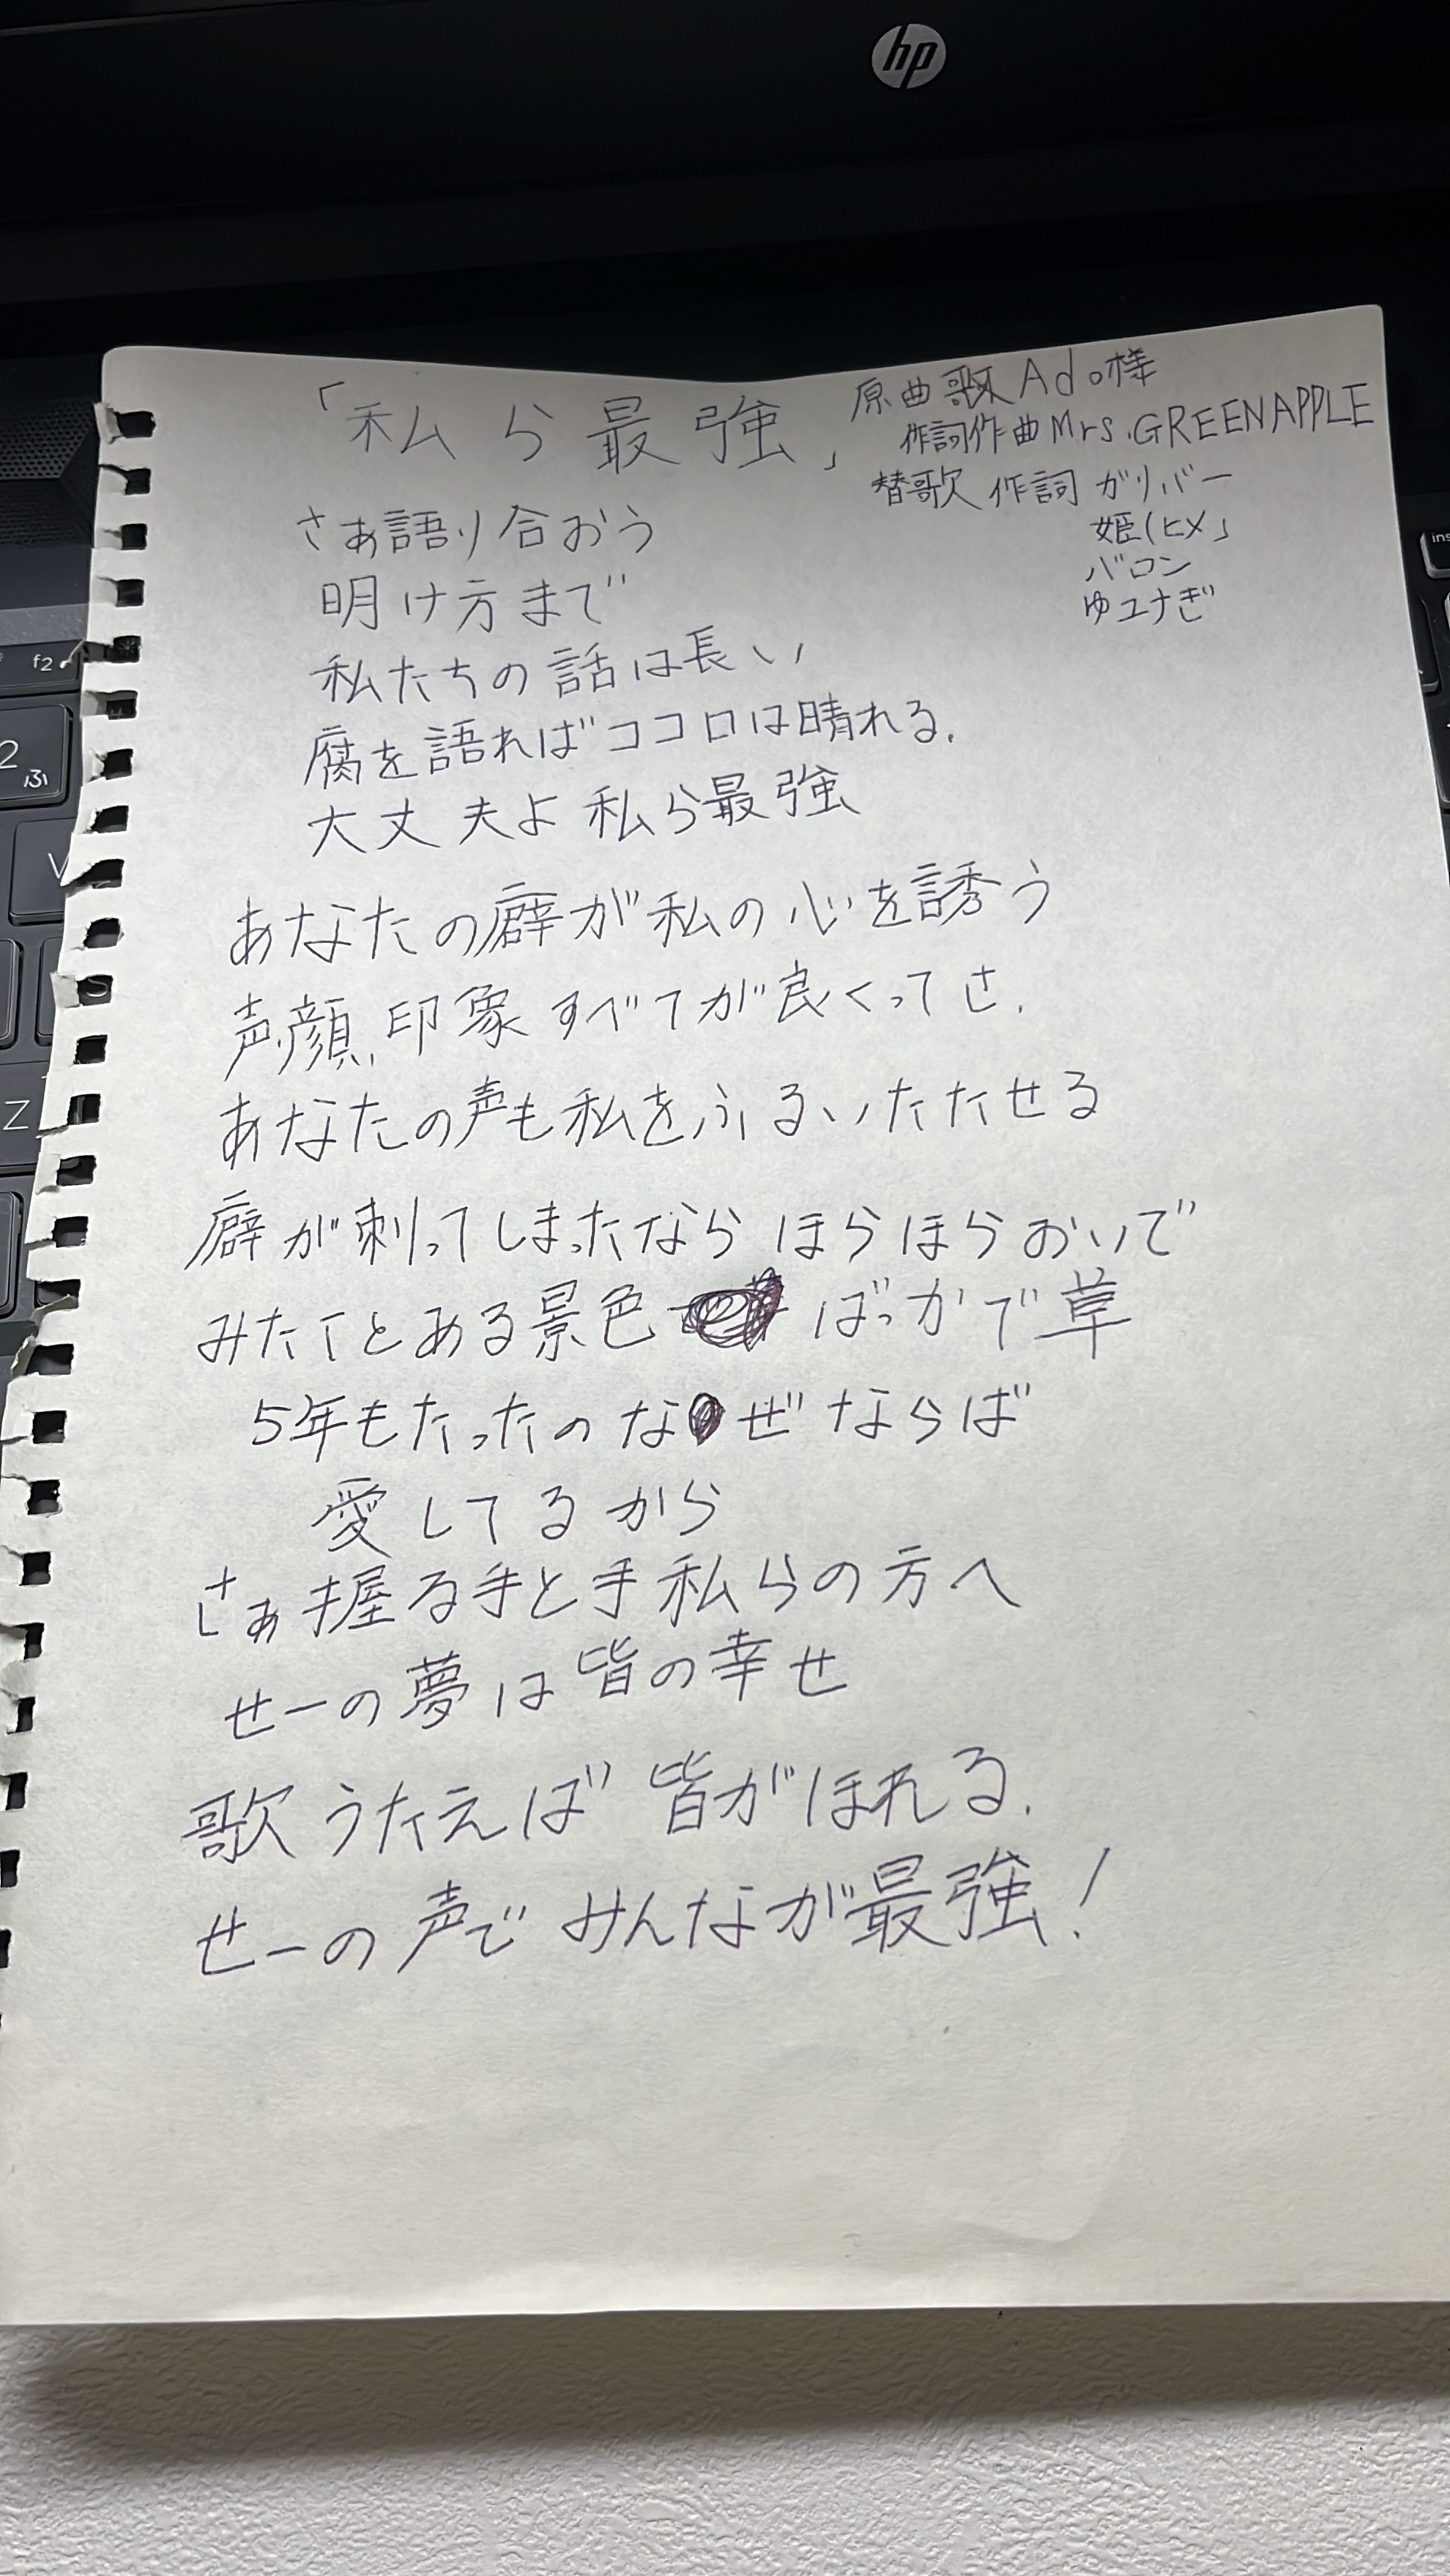 hp
「私ら最強」
原曲歌 Ado様
作詞作曲 Mrs.GREEN APPLE
替歌 作詞 ガリバー
姫(ヒメ」
バロン
ゆユナぎ
さぁ語り合おう
明け方まで
私たちの話は長い
腐を語ればココロは晴れる.
大丈夫よ 私ら最強
あなたの癖が私の心を誘う
声、顔、印象 すべてが良くってさ.
あなたの声も私をふるいたたせる
癖が刺ってしまったなら ほらほらおいで
みたことある景色 ばっかで草
5年もたったの な ぜ ならば
愛してるから
さぁ握る手と手 私らの方へ
せーの夢は皆の幸せ
歌うたえば 皆がほれる.
せーの声で みんなが最強!
f2
2
ふ
V
Z
ins